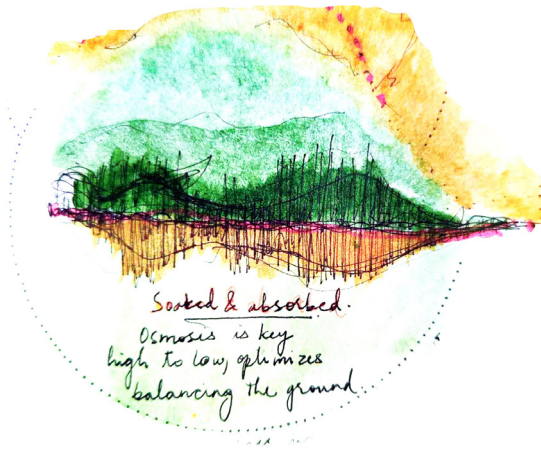 Soaked & absorbed.
Osmosis is key
high to low, optimizes
balancing the ground.